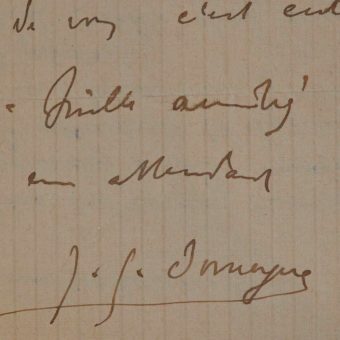 de vous c'est
Vieille amitié
en attendant
J. G. Domergue